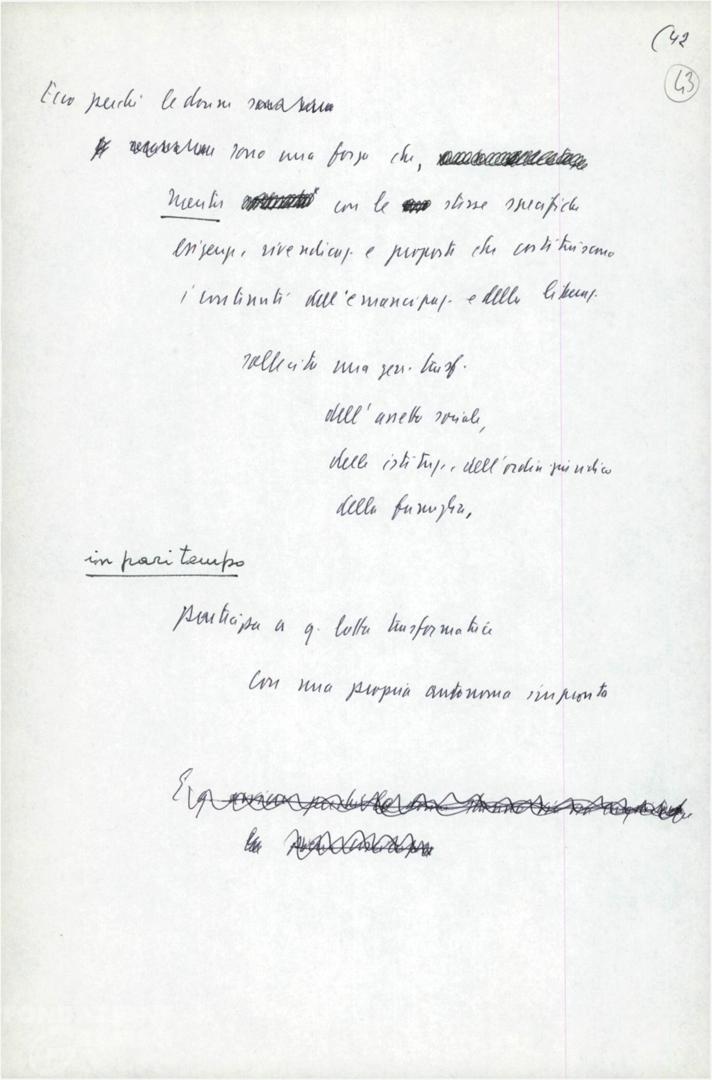 (42
43
Ecco perché le donne
sono una forza che,
mentre con le stesse specifiche
esigenz. rivendicaz. e proposte che costituiscono
i contenuti dell'emancipaz. e della liberaz.
sollecita una gen. trasf.
dell'assetto sociale,
delle istituz., dell'ordin. giuridico
della famiglia,
in pari tempo
partecipa a q. lotta trasformatrice
con una propria autonoma impronta
E q
la